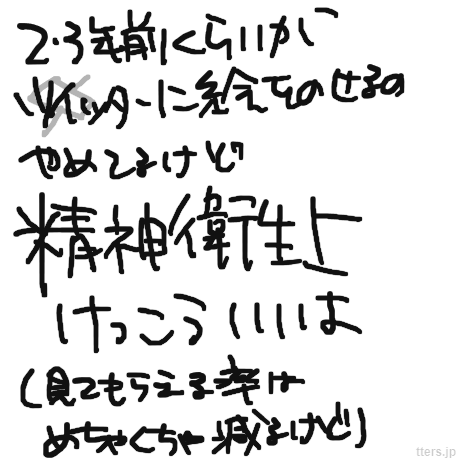 2・3年前くらいから
ツイッターに絵をのせるの
やめてるけど
精神衛生上
けっこういいよ
(見てもらえる率は
めちゃくちゃ減るけど)
tters.jp